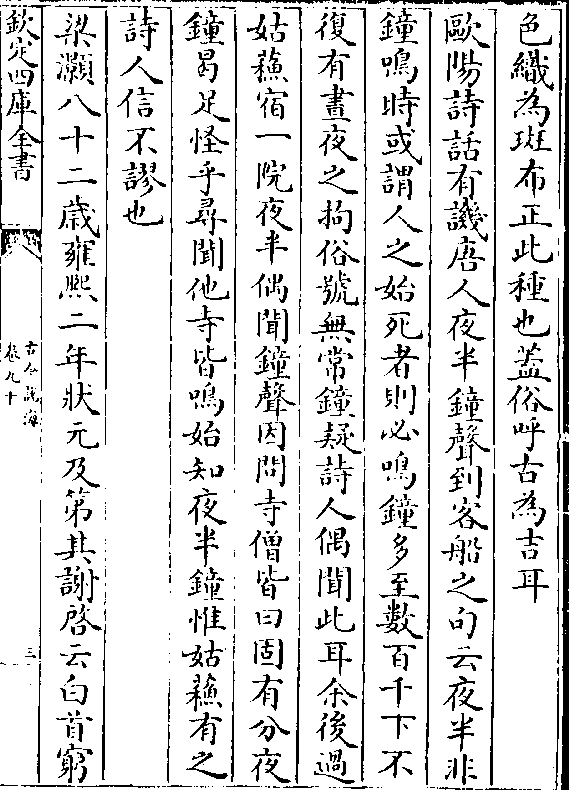 色織為斑布正此種也蓋俗呼古為吉耳
歐陽詩話有譏唐人夜半鐘聲到客船之句云夜半非
鐘鳴時或謂人之始死者則必鳴鐘多至數百千下不
復有晝夜之拘俗號無常鐘疑詩人偶聞此耳余後過
姑蘓宿一院夜半偶聞鐘聲因問寺僧皆曰固有分夜
鐘曷足怪乎尋聞他寺皆鳴始知夜半鐘惟姑蘓有之
詩人信不謬也
梁灝八十二歳雍熙二年狀元及第其謝啓云白首窮
欽定四庫全書
古今說海
卷九十
三